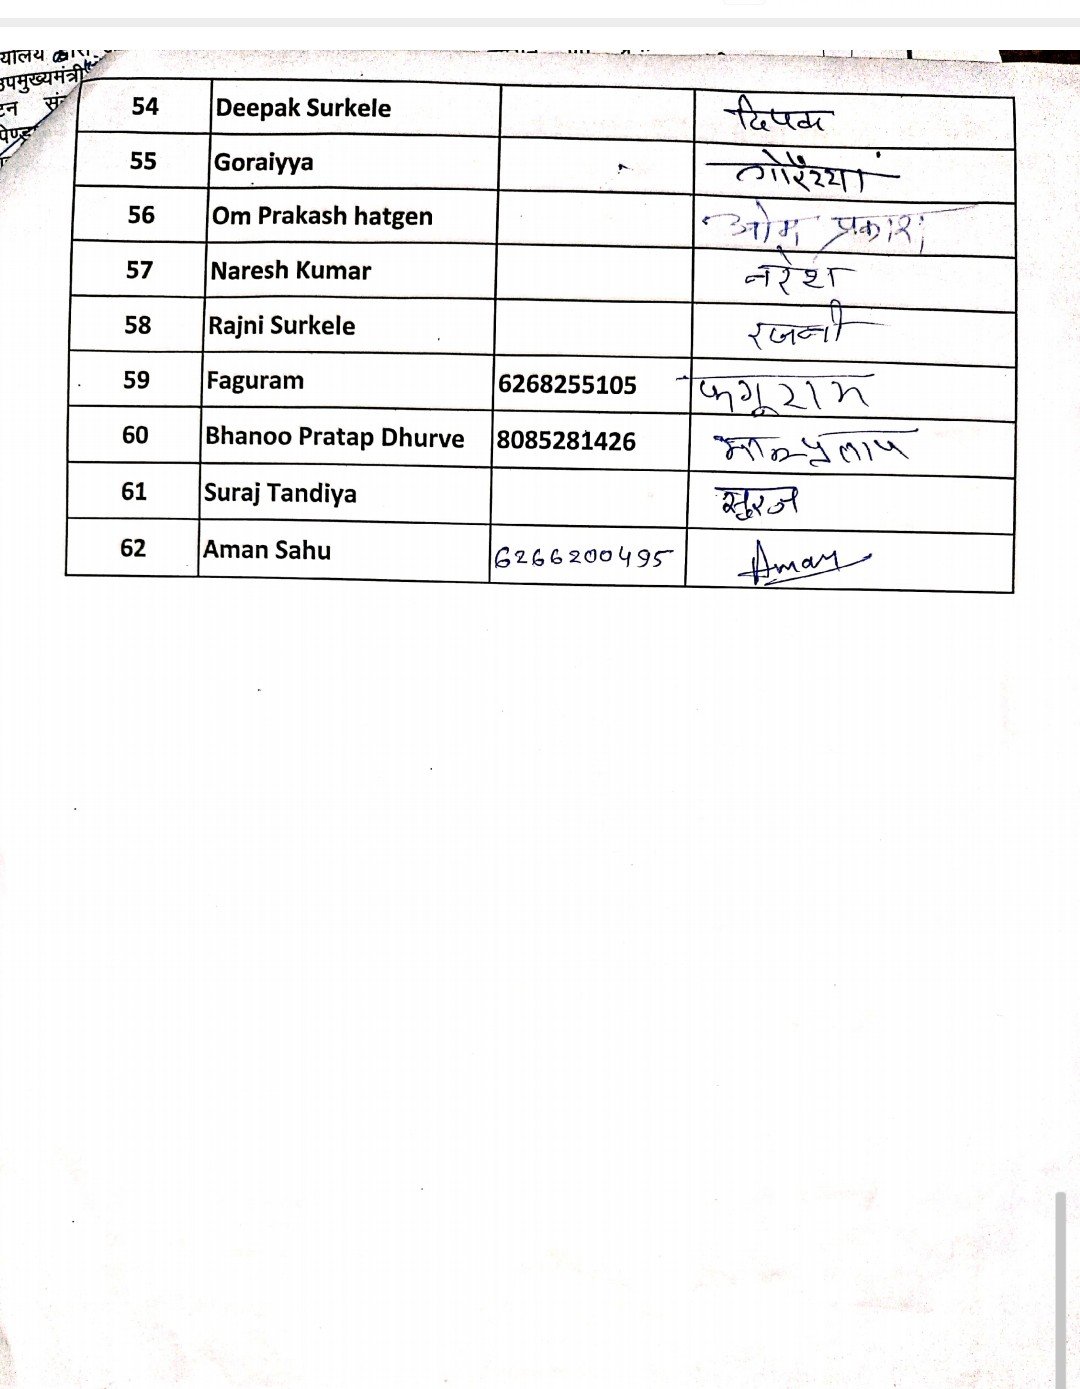 उपमुख्यमंत्री
54 Deepak Surkele दिपक
55 Goraiyya गोरैय्या
56 Om Prakash hatgen ओम प्रकाश
57 Naresh Kumar नरेश
58 Rajni Surkele रजनी
59 Faguram 6268255105 फगूराम
60 Bhanoo Pratap Dhurve 8085281426
61 Suraj Tandiya सुरज
62 Aman Sahu 6266200495 Aman